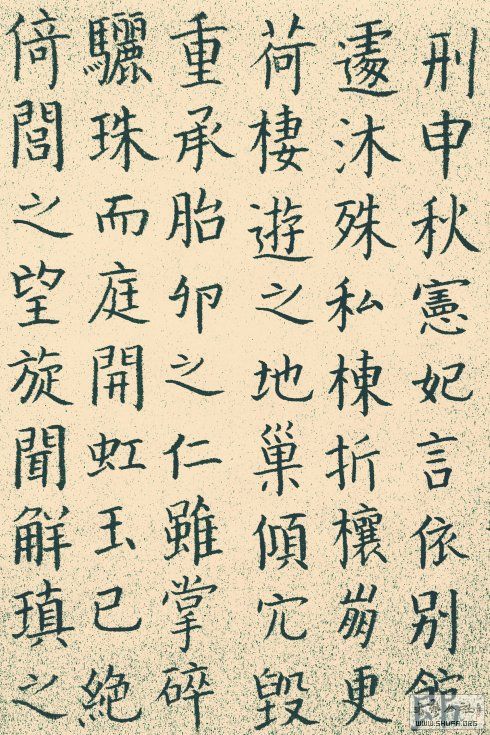 刑申秋憲妃言依別館
遽沐殊私棟折榱崩更
荷棲遊之地巢傾穴毀
重承胎卵之仁雖掌碎
驪珠而庭開虹玉已絕
倚閭之望旋聞解瑱之
WWW.SHUFA.ORG